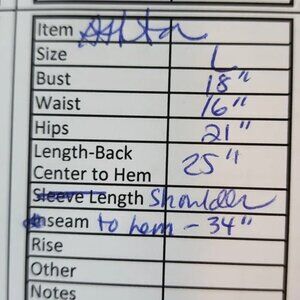 Item Ashton
Size L
Bust 18"
Waist 16"
Hips 21"
Length-Back
Center to Hem 25"
Sleeve Length Shoulder
Inseam to hem - 34"
Rise
Other
Notes